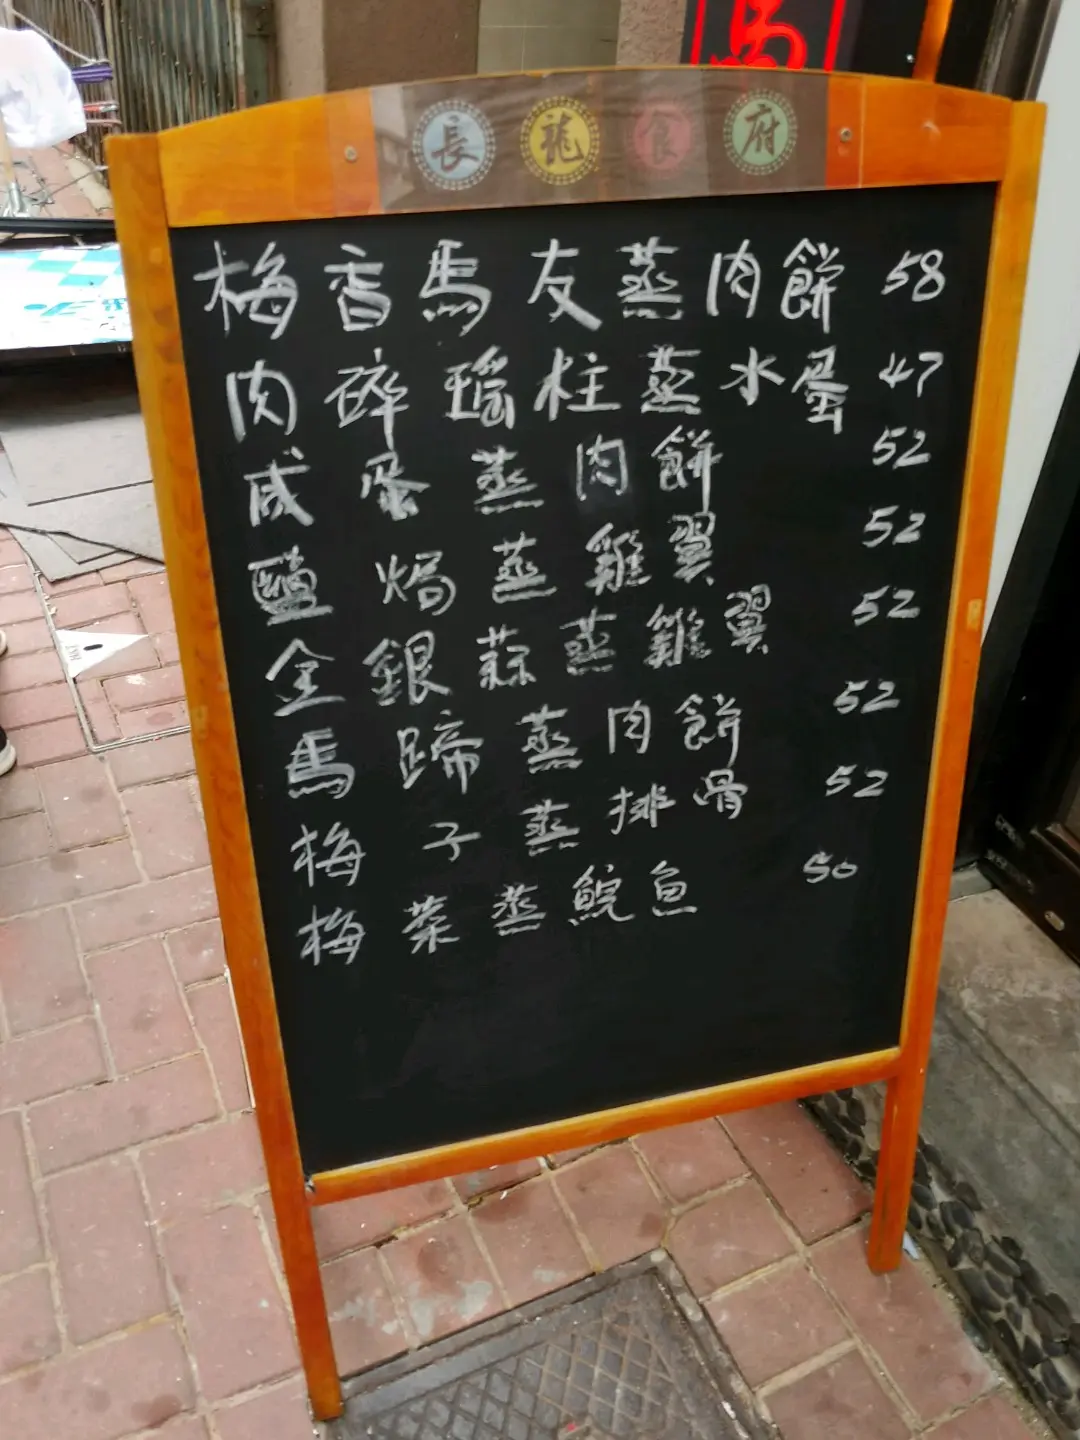 馬
長龍食府
梅香馬友蒸肉餅 58
肉碎瑤柱蒸水蛋 47
咸蛋蒸肉餅 52
鹽焗蒸雞翼 52
金銀蒜蒸雞翼 52
馬蹄蒸肉餅 52
梅子蒸排骨 52
梅菜蒸鯇魚 50